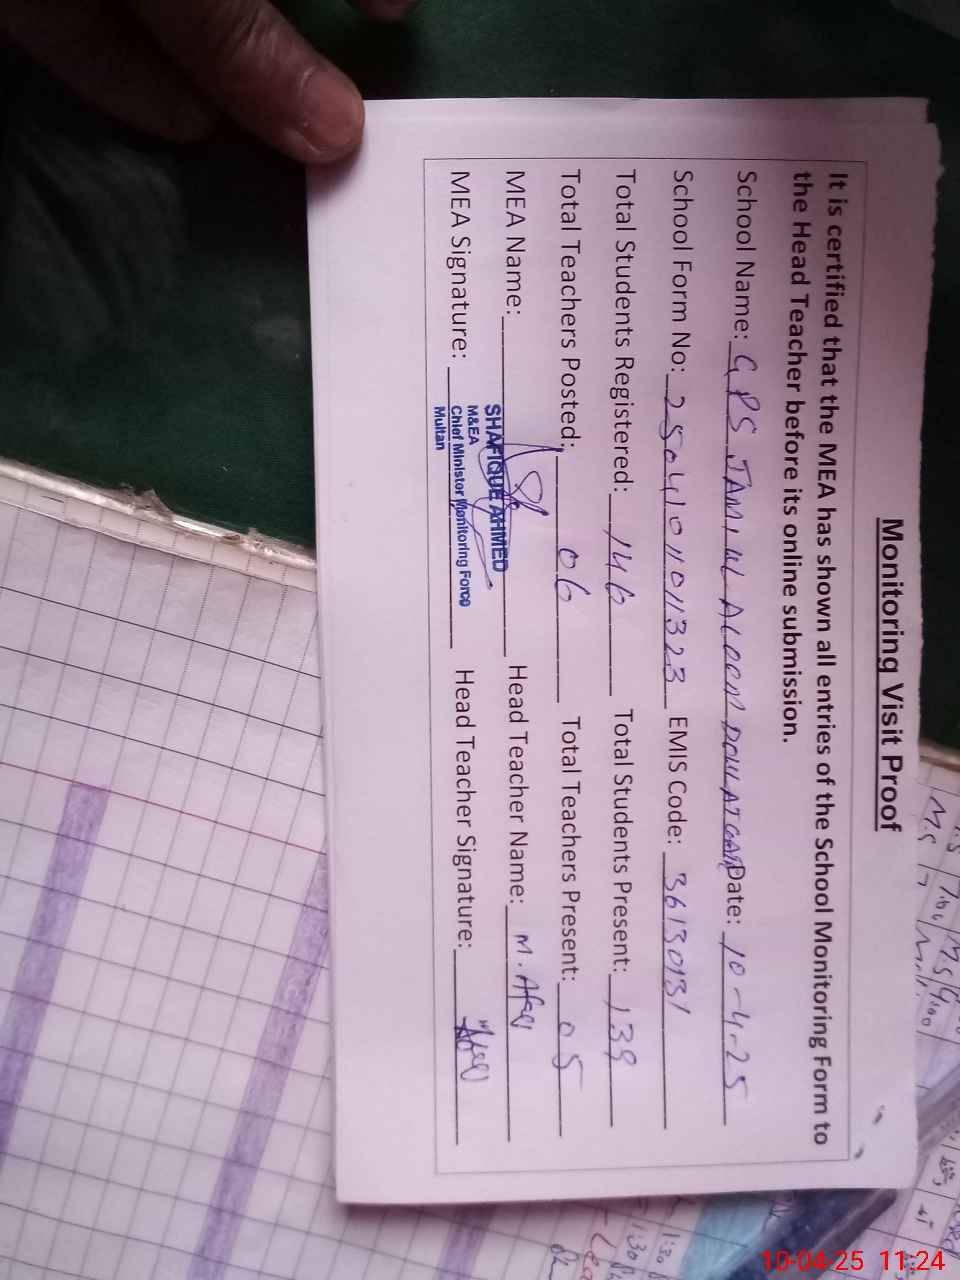 Monitoring Visit Proof
It is certified that the MEA has shown all entries of the School Monitoring Form to
the Head Teacher before its online submission.
School Name: GPS JAMIAL Date: 10-4-25
School Form No: 2504101101323 EMIS Code: 36130131
Total Students Registered: 146 Total Students Present: 139
Total Teachers Posted: 06 Total Teachers Present: 05
MEA Name: Head Teacher Name: M.
SHAFIQUE AHMED
M&EA
Chief Minister Monitoring Force
Multan
MEA Signature: Head Teacher Signature:
10-04-25 11:24